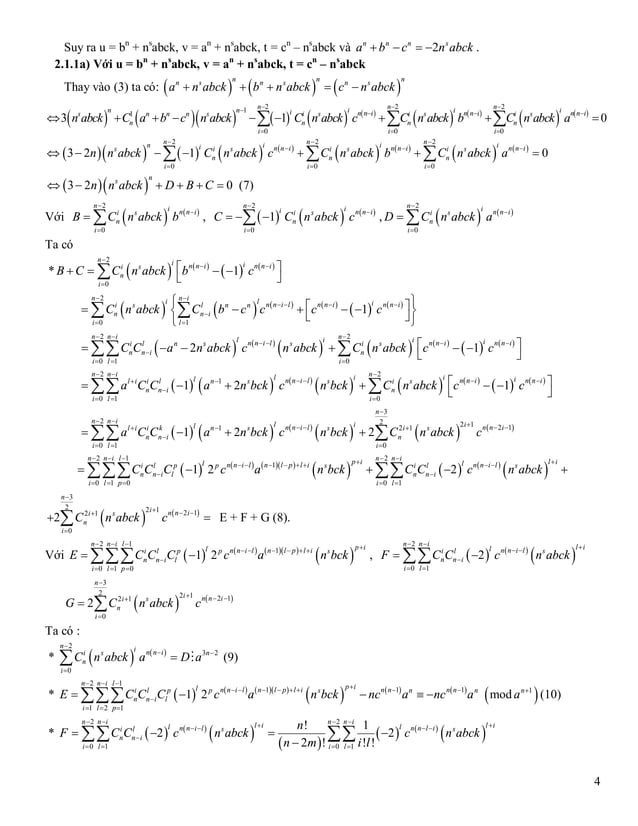 Suy ra u = bⁿ + nˢabck, v = aⁿ + nˢabck, t = cⁿ – nˢabck và aⁿ + bⁿ − cⁿ = −2nˢabck .
2.1.1a) Với u = bⁿ + nˢabck, v = aⁿ + nˢabck, t = cⁿ – nˢabck
Thay vào (3) ta có: (aⁿ + nˢabck)ⁿ + (bⁿ + nˢabck)ⁿ = (cⁿ − nˢabck)ⁿ
⇔ 3(nˢabck)ⁿ + C_n^1(aⁿ + bⁿ − cⁿ)(nˢabck)^{n−1} − ∑_{i=0}^{n−2}(−1)^i C_n^i (nˢabck)^i c^{n(n−i)} + ∑_{i=0}^{n−2} C_n^i (nˢabck)^i b^{n(n−i)} + ∑_{i=0}^{n−2} C_n^i (nˢabck)^i a^{n(n−i)} = 0
⇔ (3 − 2n)(nˢabck)ⁿ − ∑_{i=0}^{n−2}(−1)^i C_n^i (nˢabck)^i c^{n(n−i)} + ∑_{i=0}^{n−2} C_n^i (nˢabck)^i b^{n(n−i)} + ∑_{i=0}^{n−2} C_n^i (nˢabck)^i a^{n(n−i)} = 0
⇔ (3 − 2n)(nˢabck)ⁿ + D + B + C = 0 (7)
Với B = ∑_{i=0}^{n−2} C_n^i (nˢabck)^i b^{n(n−i)} , C = −∑_{i=0}^{n−2}(−1)^i C_n^i (nˢabck)^i c^{n(n−i)} , D = ∑_{i=0}^{n−2} C_n^i (nˢabck)^i a^{n(n−i)}
Ta có
* B + C = ∑_{i=0}^{n−2} C_n^i (nˢabck)^i [b^{n(n−i)} − (−1)^i c^{n(n−i)}]
= ∑_{i=0}^{n−2} C_n^i (nˢabck)^i {∑_{l=1}^{n−i} C_{n−i}^l (bⁿ − cⁿ)^l c^{n(n−i−l)} + [c^{n(n−i)} − (−1)^i c^{n(n−i)}]}
= ∑_{i=0}^{n−2} ∑_{l=1}^{n−i} C_n^i C_{n−i}^l (−aⁿ − 2nˢabck)^l c^{n(n−i−l)} (nˢabck)^i + ∑_{i=0}^{n−2} C_n^i (nˢabck)^i [c^{n(n−i)} − (−1)^i c^{n(n−i)}]
= ∑_{i=0}^{n−2} ∑_{l=1}^{n−i} a^{l+i} C_n^i C_{n−i}^l (−1)^l (a^{n−1} + 2nˢbck)^l c^{n(n−i−l)} (nˢbck)^i + ∑_{i=0}^{n−2} C_n^i (nˢabck)^i [c^{n(n−i)} − (−1)^i c^{n(n−i)}]
= ∑_{i=0}^{n−2} ∑_{l=1}^{n−i} a^{l+i} C_n^i C_{n−i}^k (−1)^l (a^{n−1} + 2nˢbck)^l c^{n(n−i−l)} (nˢbck)^i + 2∑_{i=0}^{(n−3)/2} C_n^{2i+1} (nˢabck)^{2i+1} c^{n(n−2i−1)}
= ∑_{i=0}^{n−2} ∑_{l=1}^{n−i} ∑_{p=0}^{l−1} C_n^i C_{n−i}^l C_l^p (−1)^l 2^p c^{n(n−i−l)} a^{(n−1)(l−p)+l+i} (nˢbck)^{p+i} + ∑_{i=0}^{n−2} ∑_{l=1}^{n−i} C_n^i C_{n−i}^l (−2)^l c^{n(n−i−l)} (nˢabck)^{l+i} +
+2∑_{i=0}^{(n−3)/2} C_n^{2i+1} (nˢabck)^{2i+1} c^{n(n−2i−1)} = E + F + G (8).
Với E = ∑_{i=0}^{n−2} ∑_{l=1}^{n−i} ∑_{p=0}^{l−1} C_n^i C_{n−i}^l C_l^p (−1)^l 2^p c^{n(n−i−l)} a^{(n−1)(l−p)+l+i} (nˢbck)^{p+i} , F = ∑_{i=0}^{n−2} ∑_{l=1}^{n−i} C_n^i C_{n−i}^l (−2)^l c^{n(n−i−l)} (nˢabck)^{l+i}
G = 2∑_{i=0}^{(n−3)/2} C_n^{2i+1} (nˢabck)^{2i+1} c^{n(n−2i−1)}
Ta có :
* ∑_{i=0}^{n−2} C_n^i (nˢabck)^i a^{n(n−i)} = D⋮a^{3n−2} (9)
* E = ∑_{i=1}^{n−2} ∑_{l=2}^{n−i} ∑_{p=1}^{l−1} C_n^i C_{n−i}^l C_l^p (−1)^l 2^p c^{n(n−i−l)} a^{(n−1)(l−p)+l+i} (nˢbck)^{p+i} − nc^{n(n−1)} aⁿ ≡ −nc^{n(n−1)} aⁿ (mod a^{n+1}) (10)
* F = ∑_{i=0}^{n−2} ∑_{l=1}^{n−i} C_n^i C_{n−i}^l (−2)^l c^{n(n−i−l)} (nˢabck)^{l+i} = n!/(n−2m)! ∑_{i=0}^{n−2} ∑_{l=1}^{n−i} 1/(i!l!) (−2)^l c^{n(n−l−i)} (nˢabck)^{l+i}
4